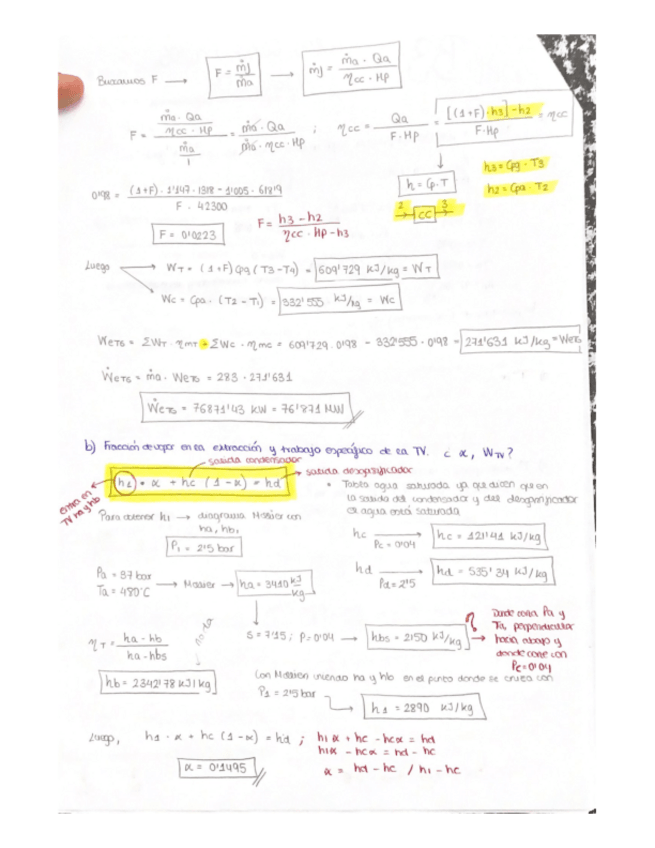 Buscamos F → F = ṁj / ṁa → ṁj = ṁa · Qa / ηcc · Hp
F = (ṁa · Qa / ηcc · Hp) / (ṁa / 1) = ṁa · Qa / ṁa · ηcc · Hp ; ηcc = Qa / F·Hp = [(1+F)·h3] - h2 / F·Hp = ηcc
h = Cp·T
h3 = Cpg · T3
h2 = Cpa · T2
2 → CC → 3
0'98 = (1+F) · 1'147 · 1318 - 1'005 · 618'9 / F · 42300
F = h3 - h2 / ηcc · Hp - h3
F = 0'0223
Luego → WT = (1+F) Cpg (T3 - T4) = 609'729 kJ/kg = WT
Wc = Cpa · (T2 - T1) = 332'555 kJ/kg = Wc
WeTG = ΣWT · ηmT - ΣWc · ηmc = 609'729 · 0'98 - 332'555 · 0'98 = 271'631 kJ/kg = WeTG
ẆeTG = ṁa · WeTG = 283 · 271'631
ẆeTG = 76871'43 KW = 76'871 MW
b) Fracción de vapor en la extracción y trabajo específico de la TV. ¿ α, WTV?
salida condensador
h1 • α + hc (1 - α) = hd
salida desgasificador
entra en TV ha y hb
• Tabla agua saturada ya que dicen que en
la salida del condensador y del desgasificador
el agua está saturada
Para obtener h1 → diagrama Mollier con
ha, hb,
P1 = 2'5 bar
hc → Pc = 0'04 → hc = 121'41 kJ/kg
hd → Pd = 2'5 → hd = 535'34 kJ/kg
Pa = 37 bar
Ta = 480°C
→ Mollier → ha = 3410 kJ/kg
S = 7'15 ; P = 0'04 → hbs = 2150 kJ/kg
Donde corta Pa y
Ta, perpendicular
hacia abajo y
donde corte con
Pc = 0'04
ηT = ha - hb / ha - hbs
hb = 2342'78 kJ/kg
Con Mollier uniendo ha y hb en el punto donde se cruza con
P1 = 2'5 bar → h1 = 2890 kJ/kg
Luego, h1 · α + hc (1 - α) = hd ; h1α + hc - hcα = hd
h1α - hcα = hd - hc
α = 0'1495
α = hd - hc / h1 - hc